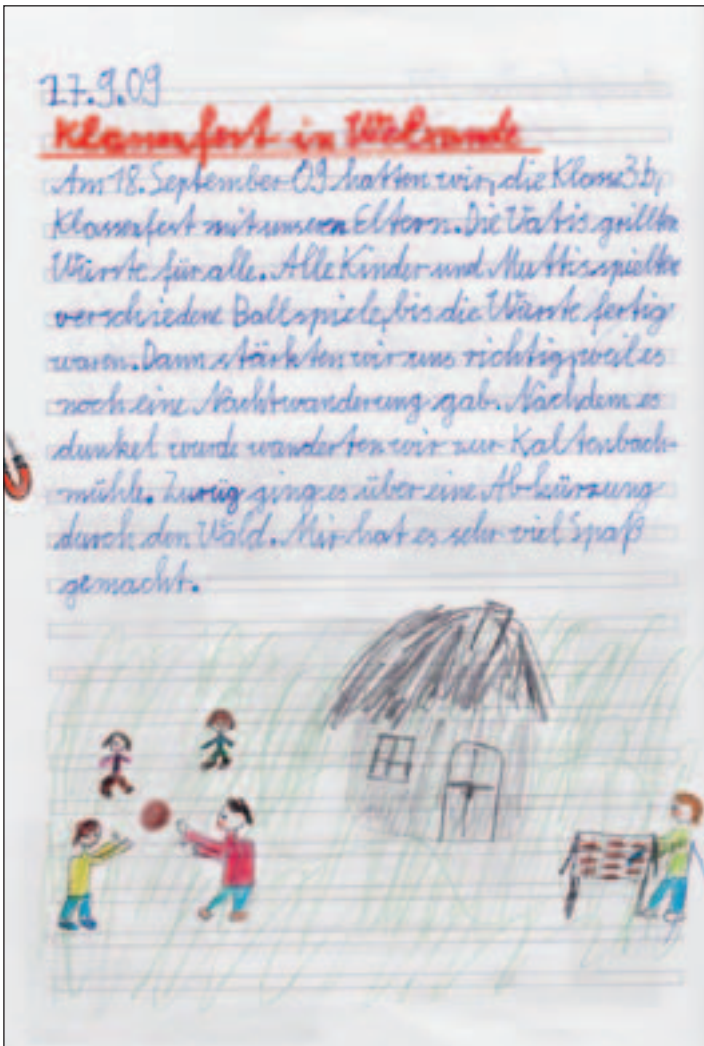 27.9.09
Klassenfest in
Am 18. September 09 hatten wir, die Klasse 3b,
Klassenfest mit unseren Eltern. Die Vatis grillten
Würste für alle. Alle Kinder und Muttis spielten
verschiedene Ballspiele, bis die Würste fertig
waren. Dann stärkten wir uns richtig, weil es
noch eine Nachtwanderung gab. Nachdem es
dunkel wurde wanderten wir zur Kaltenbach-
mühle. Zurüg ging es über eine Abkürzung
durch den Wald. Mir hat es sehr viel Spaß
gemacht.